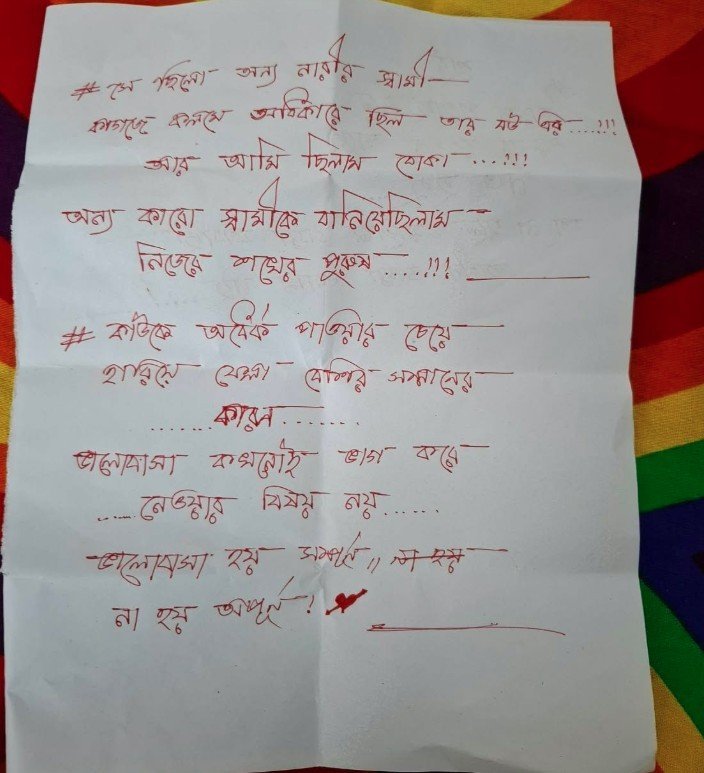 # সে ছিলো অন্য নারীর স্বামী
কাগজে কলমে অধিকারে ছিল তার বউ এর....!!!
আর আমি ছিলাম বোকা...!!!
অন্য কারো স্বামীকে বানিয়েছিলাম
নিজের শখের পুরুষ....!!!
# কাউকে অর্ধেক পাওয়ার চেয়ে
হারিয়ে ফেলা বেশি সম্মানের
......কারন.......
ভালোবাসা কখনোই ভাগ করে
....নেওয়ার বিষয় নয়......
ভালোবাসা হয় সম্পূর্ন,,
না হয় অপূর্ন !